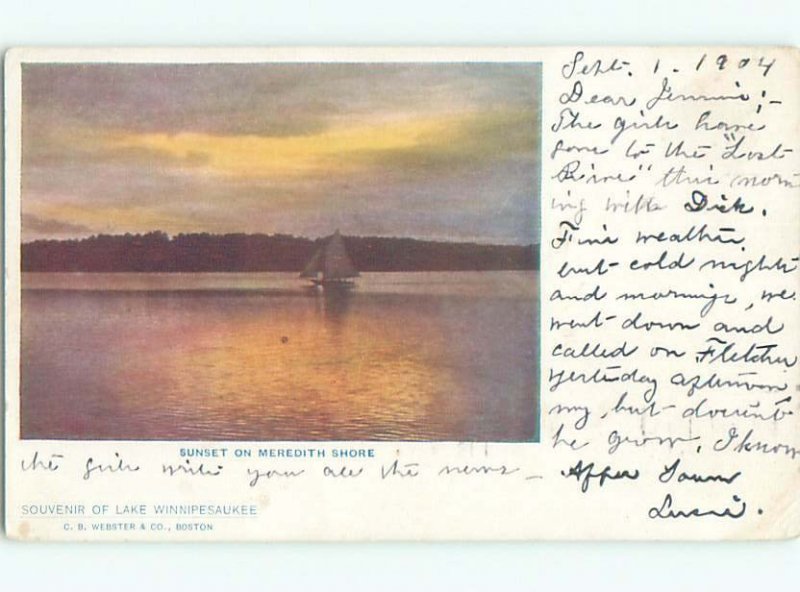 Sept. 1. 1904
Dear Jennie;-
The girls have
gone to the "Lost
River" this morn
ing with Dick.
Fine weather,
but cold nights
and mornings, we
went down and
called on Fletcher
yesterday afternoon
my, but doesn't
he grow, I know
the girls write you all the news -
Affec Yours
Lucie.
SUNSET ON MEREDITH SHORE
SOUVENIR OF LAKE WINNIPESAUKEE
C. B. WEBSTER & CO., BOSTON